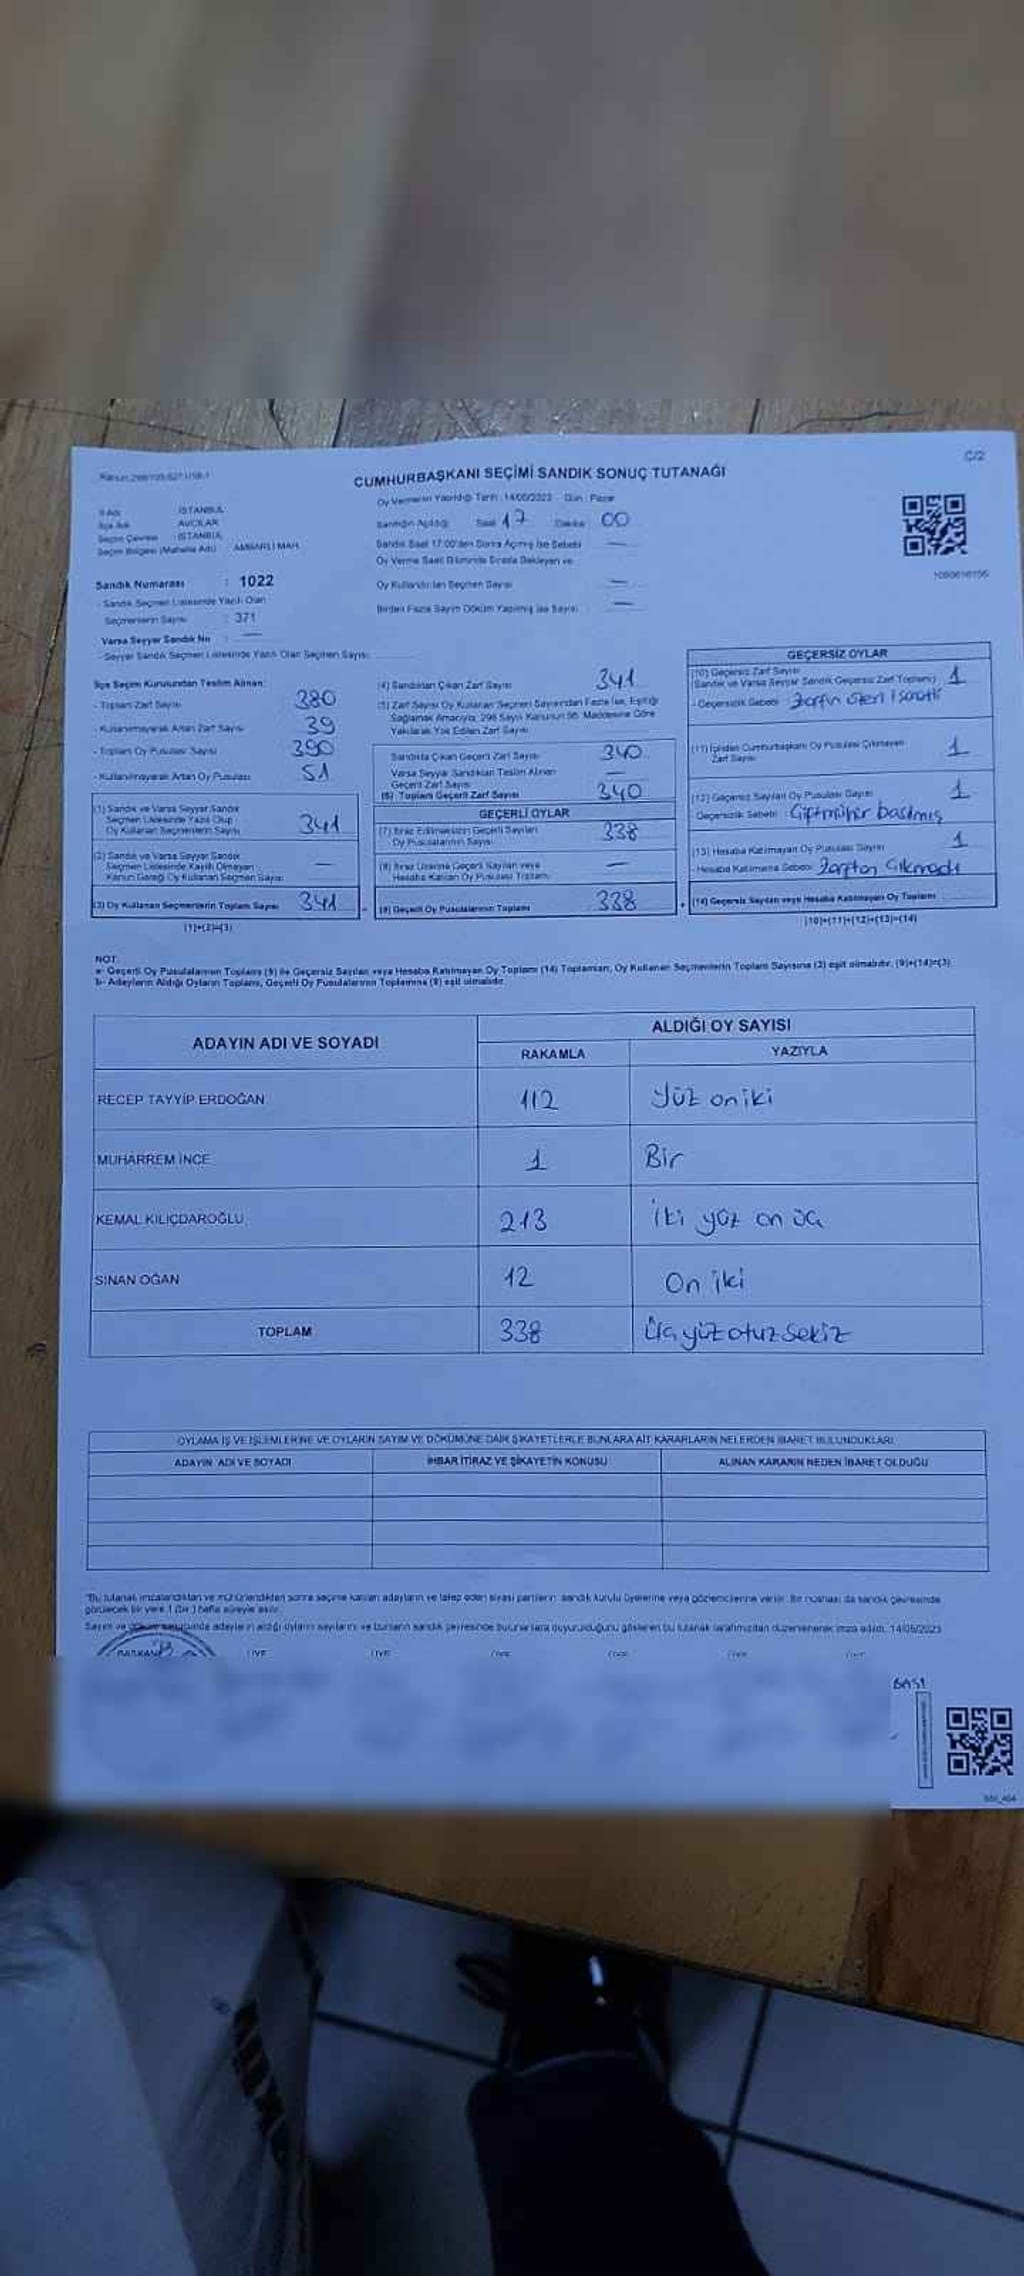 C/2
CUMHURBAŞKANI SEÇİMİ SANDIK SONUÇ TUTANAĞI
Oy Vermenin Yapıldığı Tarih : 14/05/2023 - Gün : Pazar
İl Adı : İSTANBUL
İlçe Adı : AVCILAR
Seçim Çevresi : İSTANBUL
Seçim Bölgesi (Mahalle Adı) : AMBARLI MAH.
Sandığın Açıldığı Saat 17 Dakika 00
Sandık Saat 17:00'den Sonra Açılmış İse Sebebi —
Oy Verme Saati Bitiminde Sırada Bekleyen ve
Oy Kullandırılan Seçmen Sayısı —
Birden Fazla Sayım Döküm Yapılmış İse Sayısı —
Sandık Numarası : 1022
- Sandık Seçmen Listesinde Yazılı Olan
Seçmenlerin Sayısı : 371
Varsa Seyyar Sandık No : —
- Seyyar Sandık Seçmen Listesinde Yazılı Olan Seçmen Sayısı:
İlçe Seçim Kurulundan Teslim Alınan:
- Toplam Zarf Sayısı 380
- Kullanılmayarak Artan Zarf Sayısı 39
- Toplam Oy Pusulası Sayısı 390
- Kullanılmayarak Artan Oy Pusulası 51
(1) Sandık ve Varsa Seyyar Sandık
Seçmen Listesinde Yazılı Olup
Oy Kullanan Seçmenlerin Sayısı 341
(2) Sandık ve Varsa Seyyar Sandık
Seçmen Listesinde Kayıtlı Olmayan
Kanun Gereği Oy Kullanan Seçmen Sayısı —
(3) Oy Kullanan Seçmenlerin Toplam Sayısı 341
(1)+(2)=(3)
(4) Sandıktan Çıkan Zarf Sayısı 341
(5) Zarf Sayısı Oy Kullanan Seçmen Sayısından Fazla İse, Eşitliği
Sağlamak Amacıyla; 298 Sayılı Kanunun 98. Maddesine Göre
Yakılarak Yok Edilen Zarf Sayısı
Sandıkta Çıkan Geçerli Zarf Sayısı 340
Varsa Seyyar Sandıktan Teslim Alınan
Geçerli Zarf Sayısı —
(6) Toplam Geçerli Zarf Sayısı 340
GEÇERLİ OYLAR
(7) İtiraz Edilmeksizin Geçerli Sayılan
Oy Pusulalarının Sayısı 338
(8) İtiraz Üzerine Geçerli Sayılan veya
Hesaba Katılan Oy Pusulası Toplamı —
(9) Geçerli Oy Pusulalarının Toplamı 338
GEÇERSİZ OYLAR
(10) Geçersiz Zarf Sayısı
(Sandık ve Varsa Seyyar Sandık Geçersiz Zarf Toplamı) 1
- Geçersizlik Sebebi Zarfın üzeri işaretli
(11) İçinden Cumhurbaşkanı Oy Pusulası Çıkmayan
Zarf Sayısı 1
(12) Geçersiz Sayılan Oy Pusulası Sayısı 1
Geçersizlik Sebebi Çiftmühür basılmış
(13) Hesaba Katılmayan Oy Pusulası Sayısı 1
- Hesaba Katılmama Sebebi Zarftan Çıkmadı
(14) Geçersiz Sayılan veya Hesaba Katılmayan Oy Toplamı
(10)+(11)+(12)+(13)=(14)
NOT:
a- Geçerli Oy Pusulalarının Toplamı (9) ile Geçersiz Sayılan veya Hesaba Katılmayan Oy Toplamı (14) Toplamları, Oy Kullanan Seçmenlerin Toplam Sayısına (3) eşit olmalıdır. (9)+(14)=(3)
b- Adayların Aldığı Oyların Toplamı, Geçerli Oy Pusulalarının Toplamına (9) eşit olmalıdır.
ADAYIN ADI VE SOYADI
ALDIĞI OY SAYISI
RAKAMLA YAZIYLA
RECEP TAYYİP ERDOĞAN 112 Yüz oniki
MUHARREM İNCE 1 Bir
KEMAL KILIÇDAROĞLU 213 İki yüz on üç
SİNAN OĞAN 12 On iki
TOPLAM 338 Üçyüzotuzsekiz
OYLAMA İŞ VE İŞLEMLERİNE VE OYLARIN SAYIM VE DÖKÜMÜNE DAİR ŞİKAYETLERLE BUNLARA AİT KARARLARIN NELERDEN İBARET BULUNDUKLARI
ADAYIN ADI VE SOYADI İHBAR İTİRAZ VE ŞİKAYETİN KONUSU ALINAN KARARIN NEDEN İBARET OLDUĞU
*Bu tutanak imzalandıktan ve mühürlendikten sonra seçime katılan adayların ve talep eden siyasi partilerin sandık kurulu üyelerine veya gözlemcilerine verilir. Bir nüshası da sandık çevresinde
görülecek bir yere 1 (bir) hafta süreyle asılır.
Sayım ve döküm sonucunda adayların aldığı oyların sayılarını ve bunların sandık çevresinde bulunanlara duyurulduğunu gösteren bu tutanak tarafımızdan düzenlenerek imza edildi. 14/05/2023
BAŞKAN